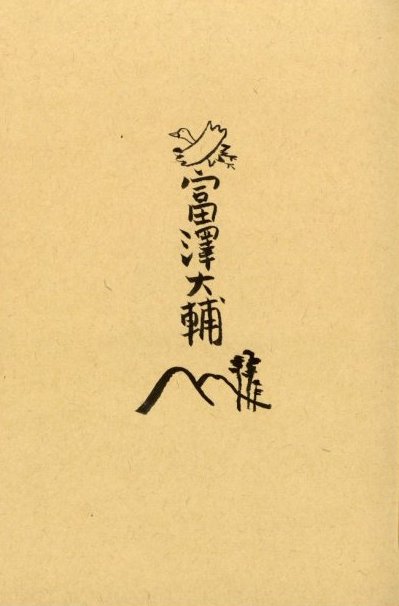 富澤大輔